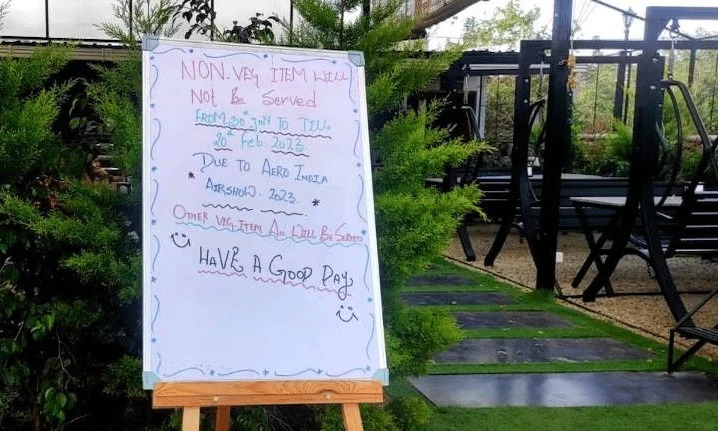 NON. VEG ITEM WILL
Not Be Served
FROM 30th JAN TO TILL
20th Feb 2023.
DUE TO AERO INDIA
* AIRSHOW. 2023. *
OTHER VEG. ITEM ALL WILL BE SERVED
HAVE A GOOD DAY